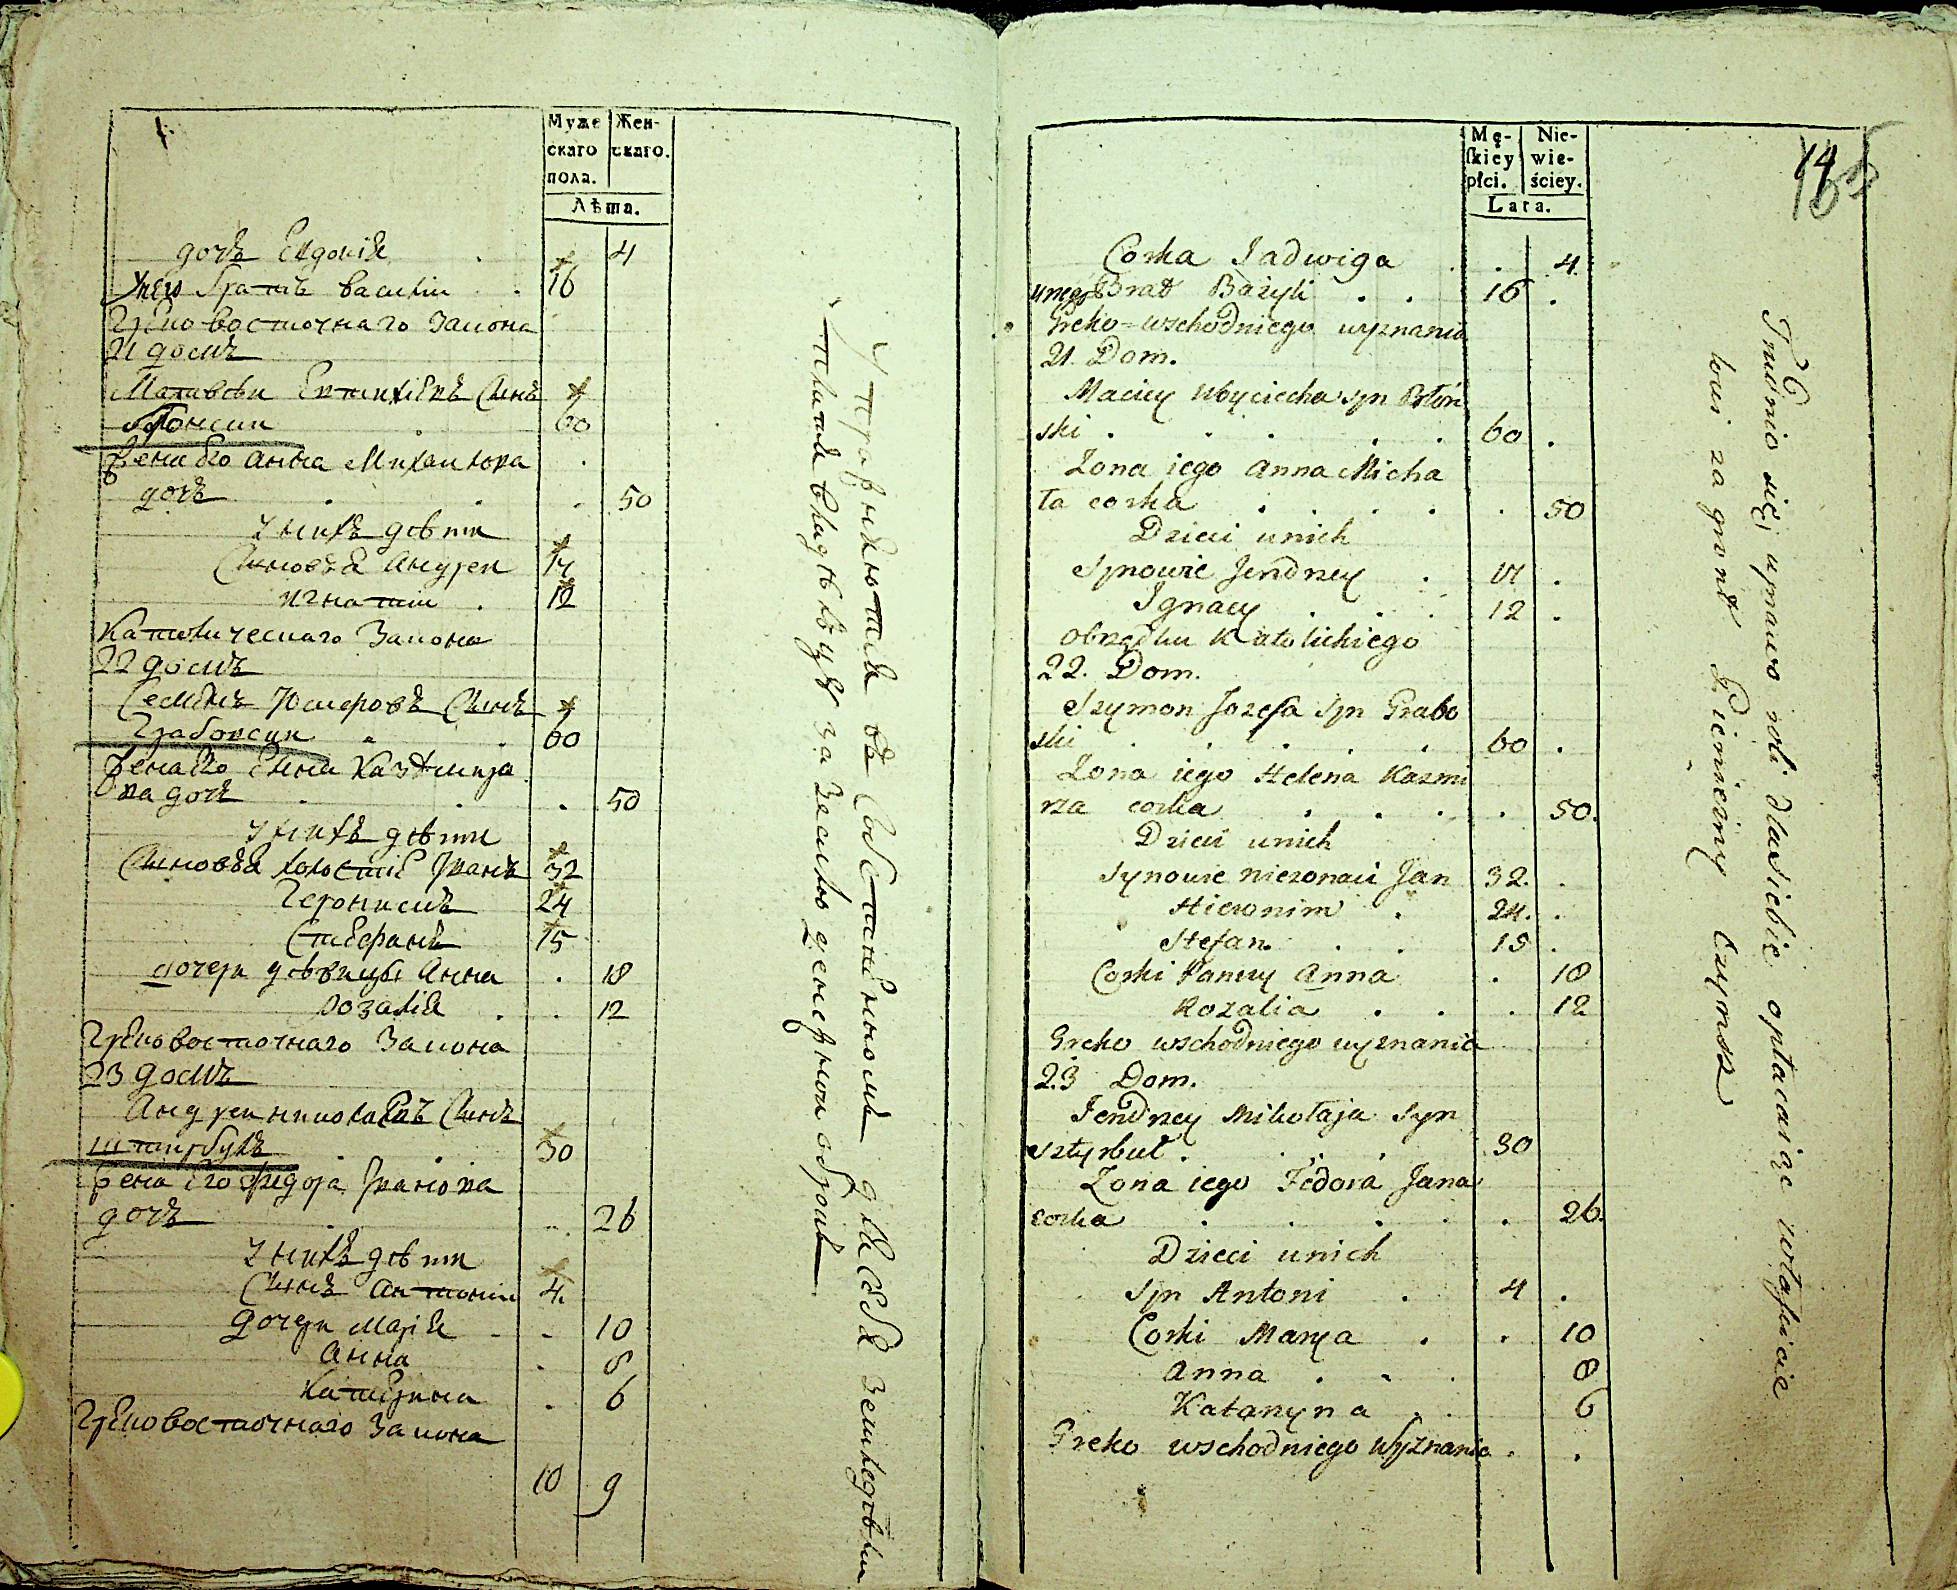 Муже
скаго
пола.
Жен-
скаго.
Лѣта.
дочь Евдокія . 4
Унего братъ василіи . 16
Греко восточнаго Закона
21 домъ
Матвѣи сынъ
60
Жена Его Анна Михаилова
дочь . . . 50
У нихъ дѣти
Сыновья Андреи 14
игнатіи . 12
Католическаго Закона
22 домъ
Семіонъ Юзефовъ Сынъ
Грабовски 60
жена Его Елена Казимира
ва дочь . . . 50
У нихъ дѣти
Сыновья холостіе Іванъ 32
Геронимъ 24
Стефанъ 15
дочери дѣвицы Анна . 18
розалія . . 12
Греко восточнаго Закона
23 домъ
Андреи николаевъ Сынъ
штырбулъ . . 30
жена Его Федора Іванова
дочь . . 26
У нихъ дѣти
Сынъ Антоніи 4.
дочери Марія . . 10
Анна . 8
Катерина . 6
Греко восточнаго Закона
10 9
Упражняются въ Собственномъ для Себя земледѣліи
платя Владѣльцу за Землю денежнои оброкъ
Mę-
skiey
płci.
Nie-
wie-
ściey.
Lata.
14
Corka Jadwiga . . 4
unego Brat Bazyli . . 16 .
Greko-wschodniego wyznania
21. Dom.
Maciey Woyciecha syn Błoń
ski . . . . . 60 .
Zona iego Anna Micha
ła corka . . . . . 50
Dzieci unich
Synowie Jendrzey . 14 .
Ignacy . . . 12 .
obrządku Katolickiego
22. Dom.
Szymon Jozefa Syn Grabo
ski . . . . . 60 .
Zona iego Helena Kazmi
rza corka . . . . 50.
Dzieci unich
Synowie niezonaci Jan 32. .
Hieronim . 24. .
Stefan . . 15 .
Corki Panny Anna . 18
Rozalia . . . 12
Greko wschodniego wyznania
23 Dom.
Jendrzey Mikołaja Syn
Sztyrbul . . . . 30
Zona iego Fedora Jana
corka . . . . . 26.
Dzieci unich
Syn Antoni . 4 .
Corki Marya . . 10
Anna . . . 8
Katarzyna . . 6
Greko wschodniego Wyznania . .
Trudnio się uprawo roli dlasiebie opłacaiąc
za grunt Pienieżny Czynsz